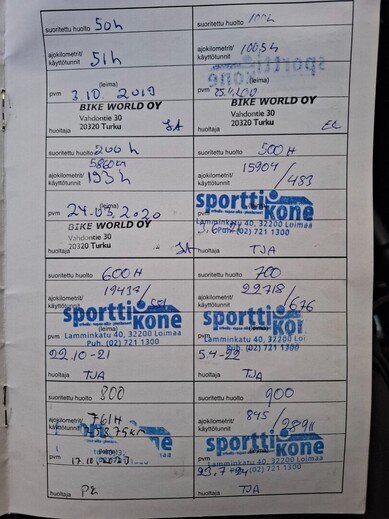 suoritettu huolto 50h
ajokilometrit/
käyttötunnit 51h
(leima)
pvm 3.10.2019
BIKE WORLD OY
Vahdontie 30
20320 Turku
huoltaja
suoritettu huolto 100h
ajokilometrit/
käyttötunnit 100,5h
sportti
kone
(leima)
pvm
BIKE WORLD OY
Vahdontie 30
20320 Turku
huoltaja
suoritettu huolto 200h
5860km
ajokilometrit/
käyttötunnit 193h
(leima)
pvm 24.03.2020
BIKE WORLD OY
Vahdontie 30
20320 Turku
huoltaja
suoritettu huolto 500H
ajokilometrit/ 15904/
käyttötunnit 483
sportti
kone
Lamminkatu 40, 32200 Loimaa
Puh. (02) 721 1300
pvm
huoltaja TJA
suoritettu huolto 600H
ajokilometrit/ 19437/
käyttötunnit
sportti
kone
(leima)
pvm
Lamminkatu 40, 32200 Loimaa
Puh. (02) 721 1300
22.10-21
huoltaja TJA
suoritettu huolto 700
ajokilometrit/ 22718/
käyttötunnit 676
sportti
(leima)
pvm
Lamminkatu 40, 32200 Loimaa
Puh. (02) 721 1300
5.4-22
huoltaja TJA
suoritettu huolto 800
ajokilometrit/ 761H
käyttötunnit
kone
pvm 17.10.2023
huoltaja
suoritettu huolto 900
ajokilometrit/ 845/
käyttötunnit
sportti
kone
(leima)
pvm
Lamminkatu 40, 32200 Loimaa
Puh. (02) 721 1300
huoltaja TJA